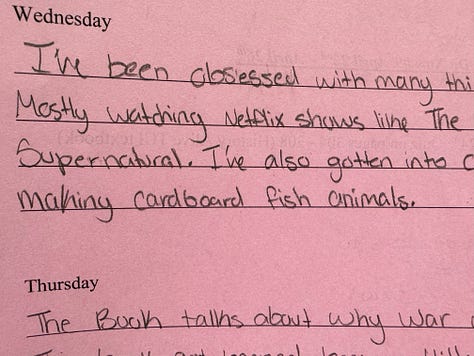 Wednesday
I've been obsessed with many thi
Mostly watching Netflix shows like The
Supernatural. I've also gotten into c
making cardboard fish animals.
Thursday
The Book talks about why war